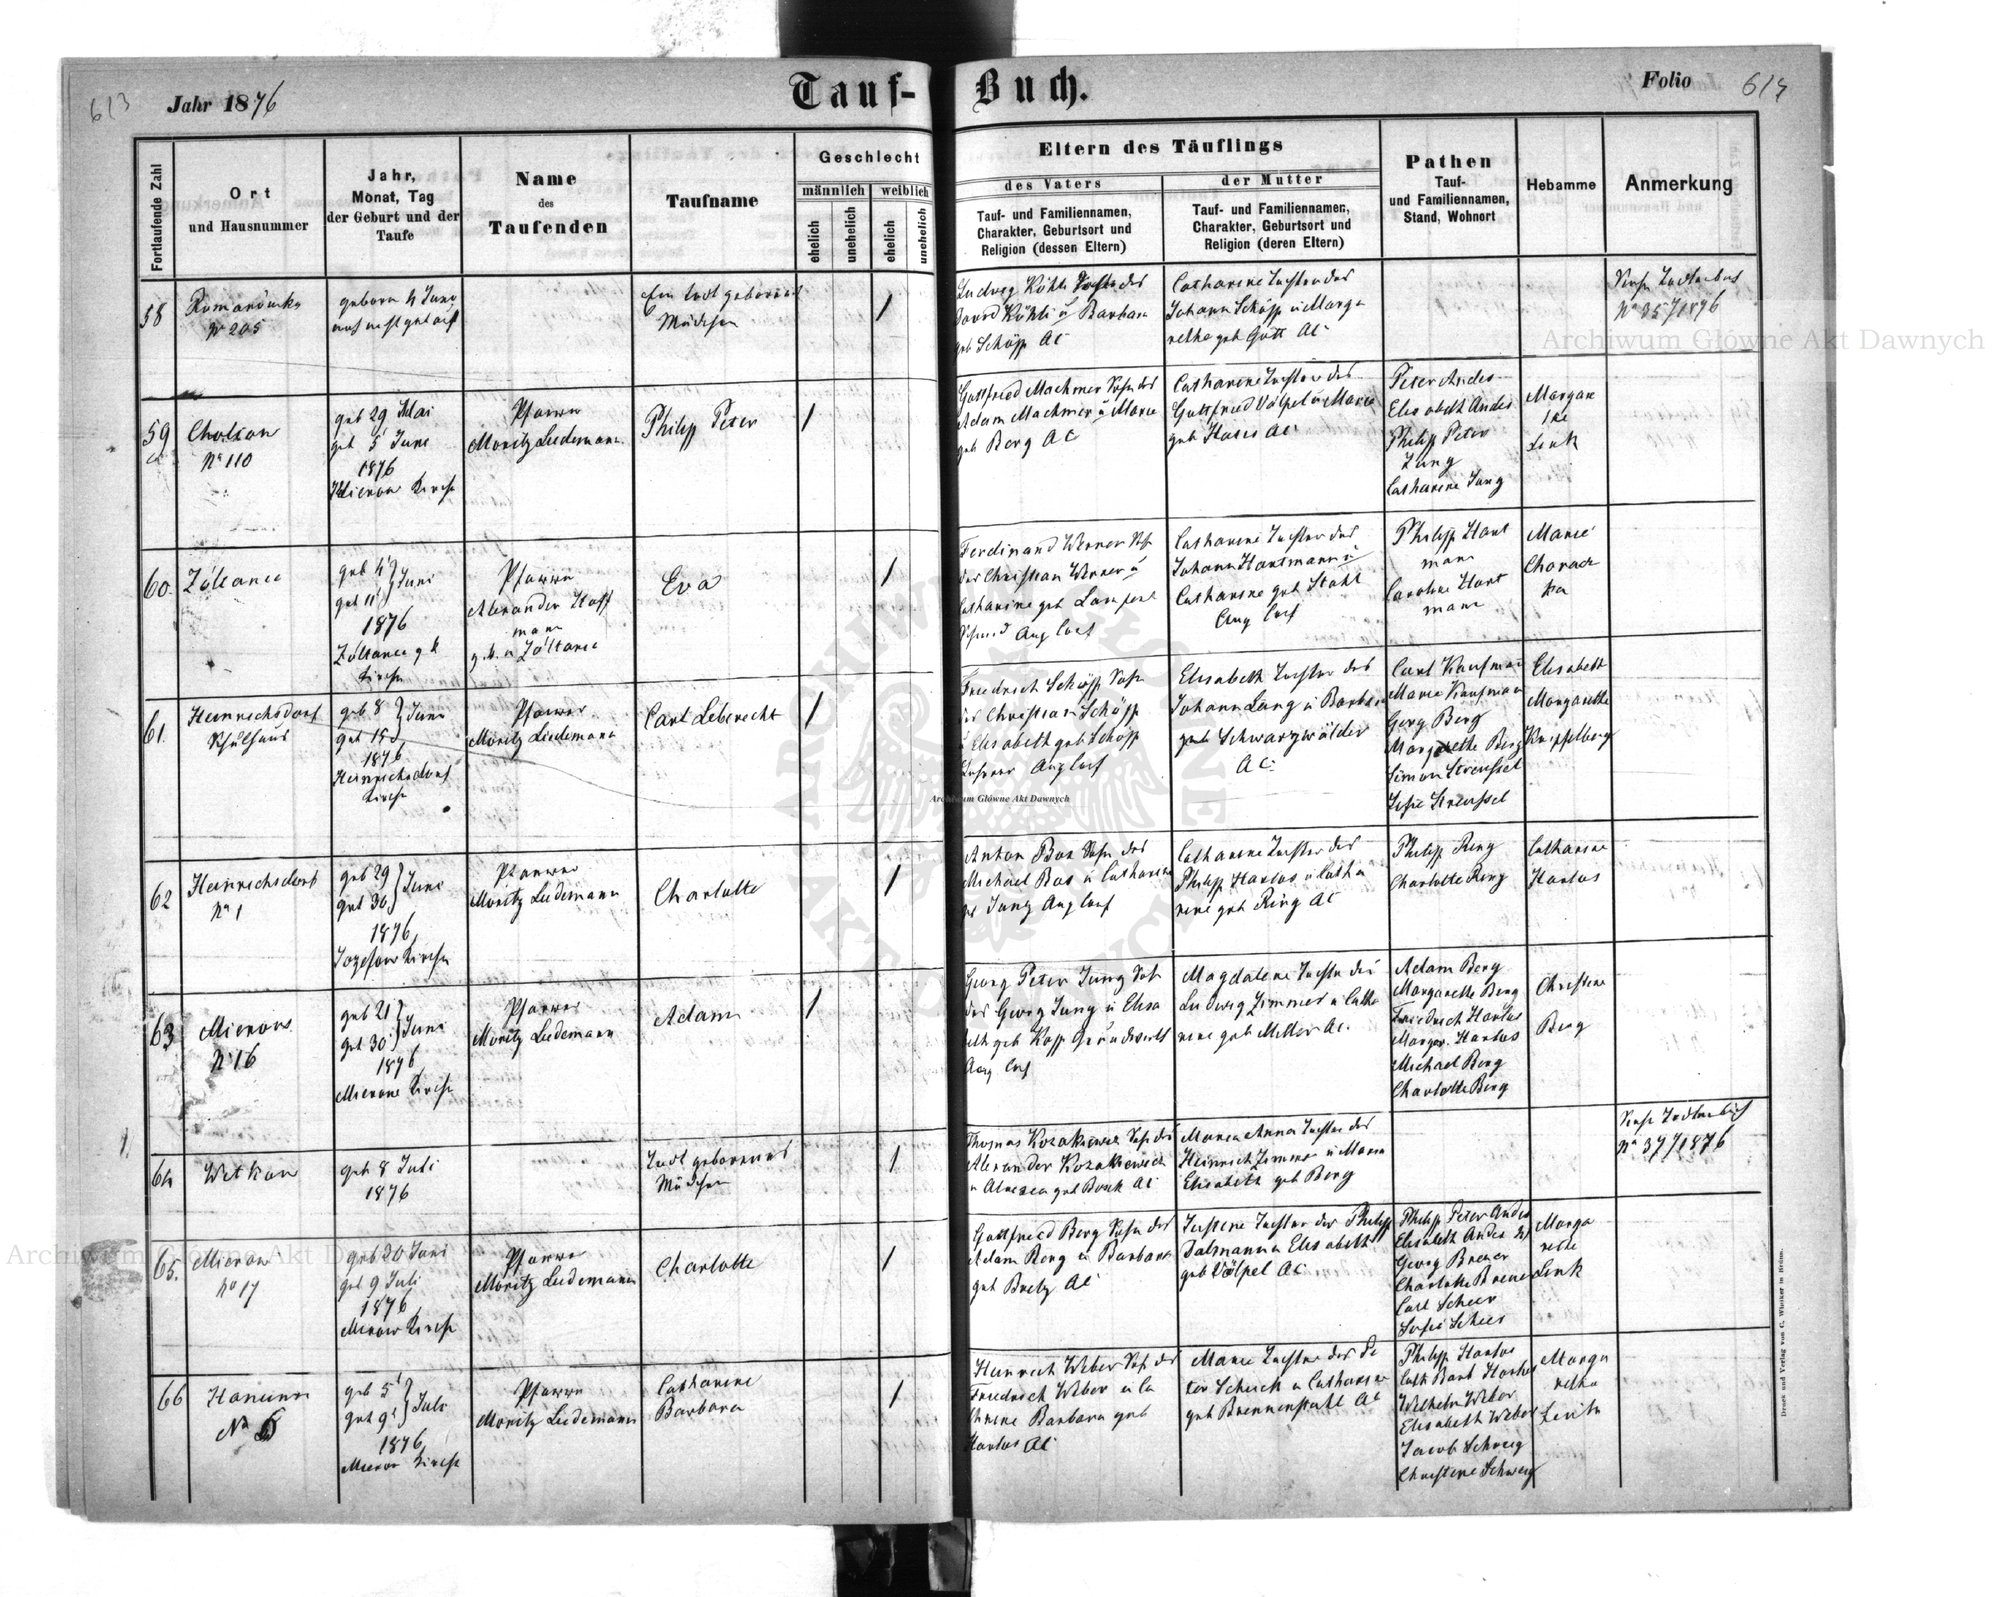 613
Jahr 1876
Tauf-Buch.
Folio
614
Fortlaufende Zahl
Ort
und Hausnummer
Jahr,
Monat, Tag
der Geburt und der
Taufe
Name
des
Taufenden
Taufname
Geschlecht
männlich
weiblich
ehelich
unehelich
ehelich
unehelich
Eltern des Täuflings
des Vaters
Tauf- und Familiennamen,
Charakter, Geburtsort und
Religion (dessen Eltern)
der Mutter
Tauf- und Familiennamen,
Charakter, Geburtsort und
Religion (deren Eltern)
Pathen
Tauf-
und Familiennamen,
Stand, Wohnort
Hebamme
Anmerkung
58
Romanówka
No 205
geboren 4 Juni
Ein todt geborenes
Mädchen
/
Ludwig Köhli
David Köhli u Barbara
geb Schöpp AC
Catharine Tochter des
Johann Schöpp u Marga
rethe geb Gött AC
Siehe Todtenbuch
No 35/1876
59
Cholcow
No 110
geb 29 Mai
get 5 Juni
1876
Mierow Kirche
Pfarrer
Moritz Ludemann
Philipp Peter
/
Gottfried Machmer Sohn des
Adam Machmer u Marie
geb Berg AC
Catharine Tochter des
Gottfried Völpel u Marie
geb Hases AC
Peter Andes
Elisabeth Andes
Philipp Peter
Jung
Catharine Jung
Margare
the
Link
60.
Żółtance
geb 4
get 11 } Juni
1876
Żółtance g k
Kirche
Pfarrer
Alexander Hoff
mann
g. k. in Żółtance
Eva
/
Ferdinand Werner Sohn
des Christian Werner u
Catharine geb
Schmid Aug Conf
Catharine Tochter des
Johann Hartmann u
Catharine geb Stahl
Aug Conf
Philipp Hart
mann
Caroline Hart
mann
Marie
Charach
ka
61.
Heinrichsdorf
Schulhaus
geb 8
get 15 } Juni
1876
Heinrichsdorf
Kirche
Pfarrer
Moritz Ludemann
Carl Leberecht
/
Friedrich Schöpp Sohn
des Christian Schöpp
u Elisabeth geb Schöpp
Lehrer Aug Conf
Elisabeth Tochter des
Johann Lang u Barbara
geb Schwarzwälder
AC
Carl Kaufmann
Marie Kaufmann
Georg Berg
Margarethe Berg
Simon Streussel
Sofie Streussel
Elisabeth
Margarethe
Knipfelberg
62
Heinrichsdorf
No 1
geb 29
get 30 } Juni
1876
Jozefow Kirche
Pfarrer
Moritz Ludemann
Charlotte
/
Anton Bos Sohn des
Michael Bos u Catharine
geb Jung Aug Conf
Catharine Tochter des
Philipp Harlos u Catha
rine geb Ring AC
Philipp Ring
Charlotte Ring
Catharine
Harlos
63
Mierow
No 16
geb 21
get 30 } Juni
1876
Mierow Kirche
Pfarrer
Moritz Ludemann
Adam
/
Georg Peter Jung Sohn
des Georg Jung u Elisa
beth geb Kopp Grundwirth
Aug Conf
Magdalene Tochter des
Ludwig Zimmer u Catha
rine geb Miller AC.
Adam Berg
Margarethe Berg
Friedrich Harlos
Margar. Harlos
Michael Berg
Charlotte Berg
Christine
Berg
64
Witkow
geb 8 Juli
1876
Todt geborenes
Mädchen
/
Thomas Kozakiewicz Sohn des
Alexander Kozakiewicz
AC
Maria Anna Tochter des
Heinrich Zimmer u Maria
Elisabeth geb Berg
Siehe Todtenbuch
No 37/1876
65.
Mierow
No 17
geb 30 Juni
get 9 Juli
1876
Mierow Kirche
Pfarrer
Moritz Ludemann
Charlotte
/
Gottfried Berg Sohn des
Adam Berg u Barbara
geb Bretz AC
Justine Tochter des Philipp
Dalmann u Elisabeth
geb Völpel AC
Philipp Peter Andes
Elisabeth Andes
Georg Brener
Charlotte Brener
Carl Scheer
Sofie Scheer
Marga
rethe
Link
66
Hanunin
No 5
geb 5
get 9 } Juli
1876
Mierow Kirche
Pfarrer
Moritz Ludemann
Catharine
Barbara
/
Heinrich Weber Sohn des
Friedrich Weber u Ca
tharine Barbara geb
Harlos AC
Marie Tochter des Pe
ter Schick u Catharine
geb Brennenstuhl AC
Philipp Harlos
Cath Barb Harlos
Wilhelm Weber
Elisabeth Weber
Jacob Schweig
Christine Schweig
Marga
retha
Druck und Verlag von C. Winiker in Brünn.
Archiwum Główne Akt Dawnych
Archiwum Główne Akt Dawnych
Archiwum Główne Akt Dawnych
ARCHIWUM GŁÓWNE AKT DAWNYCH